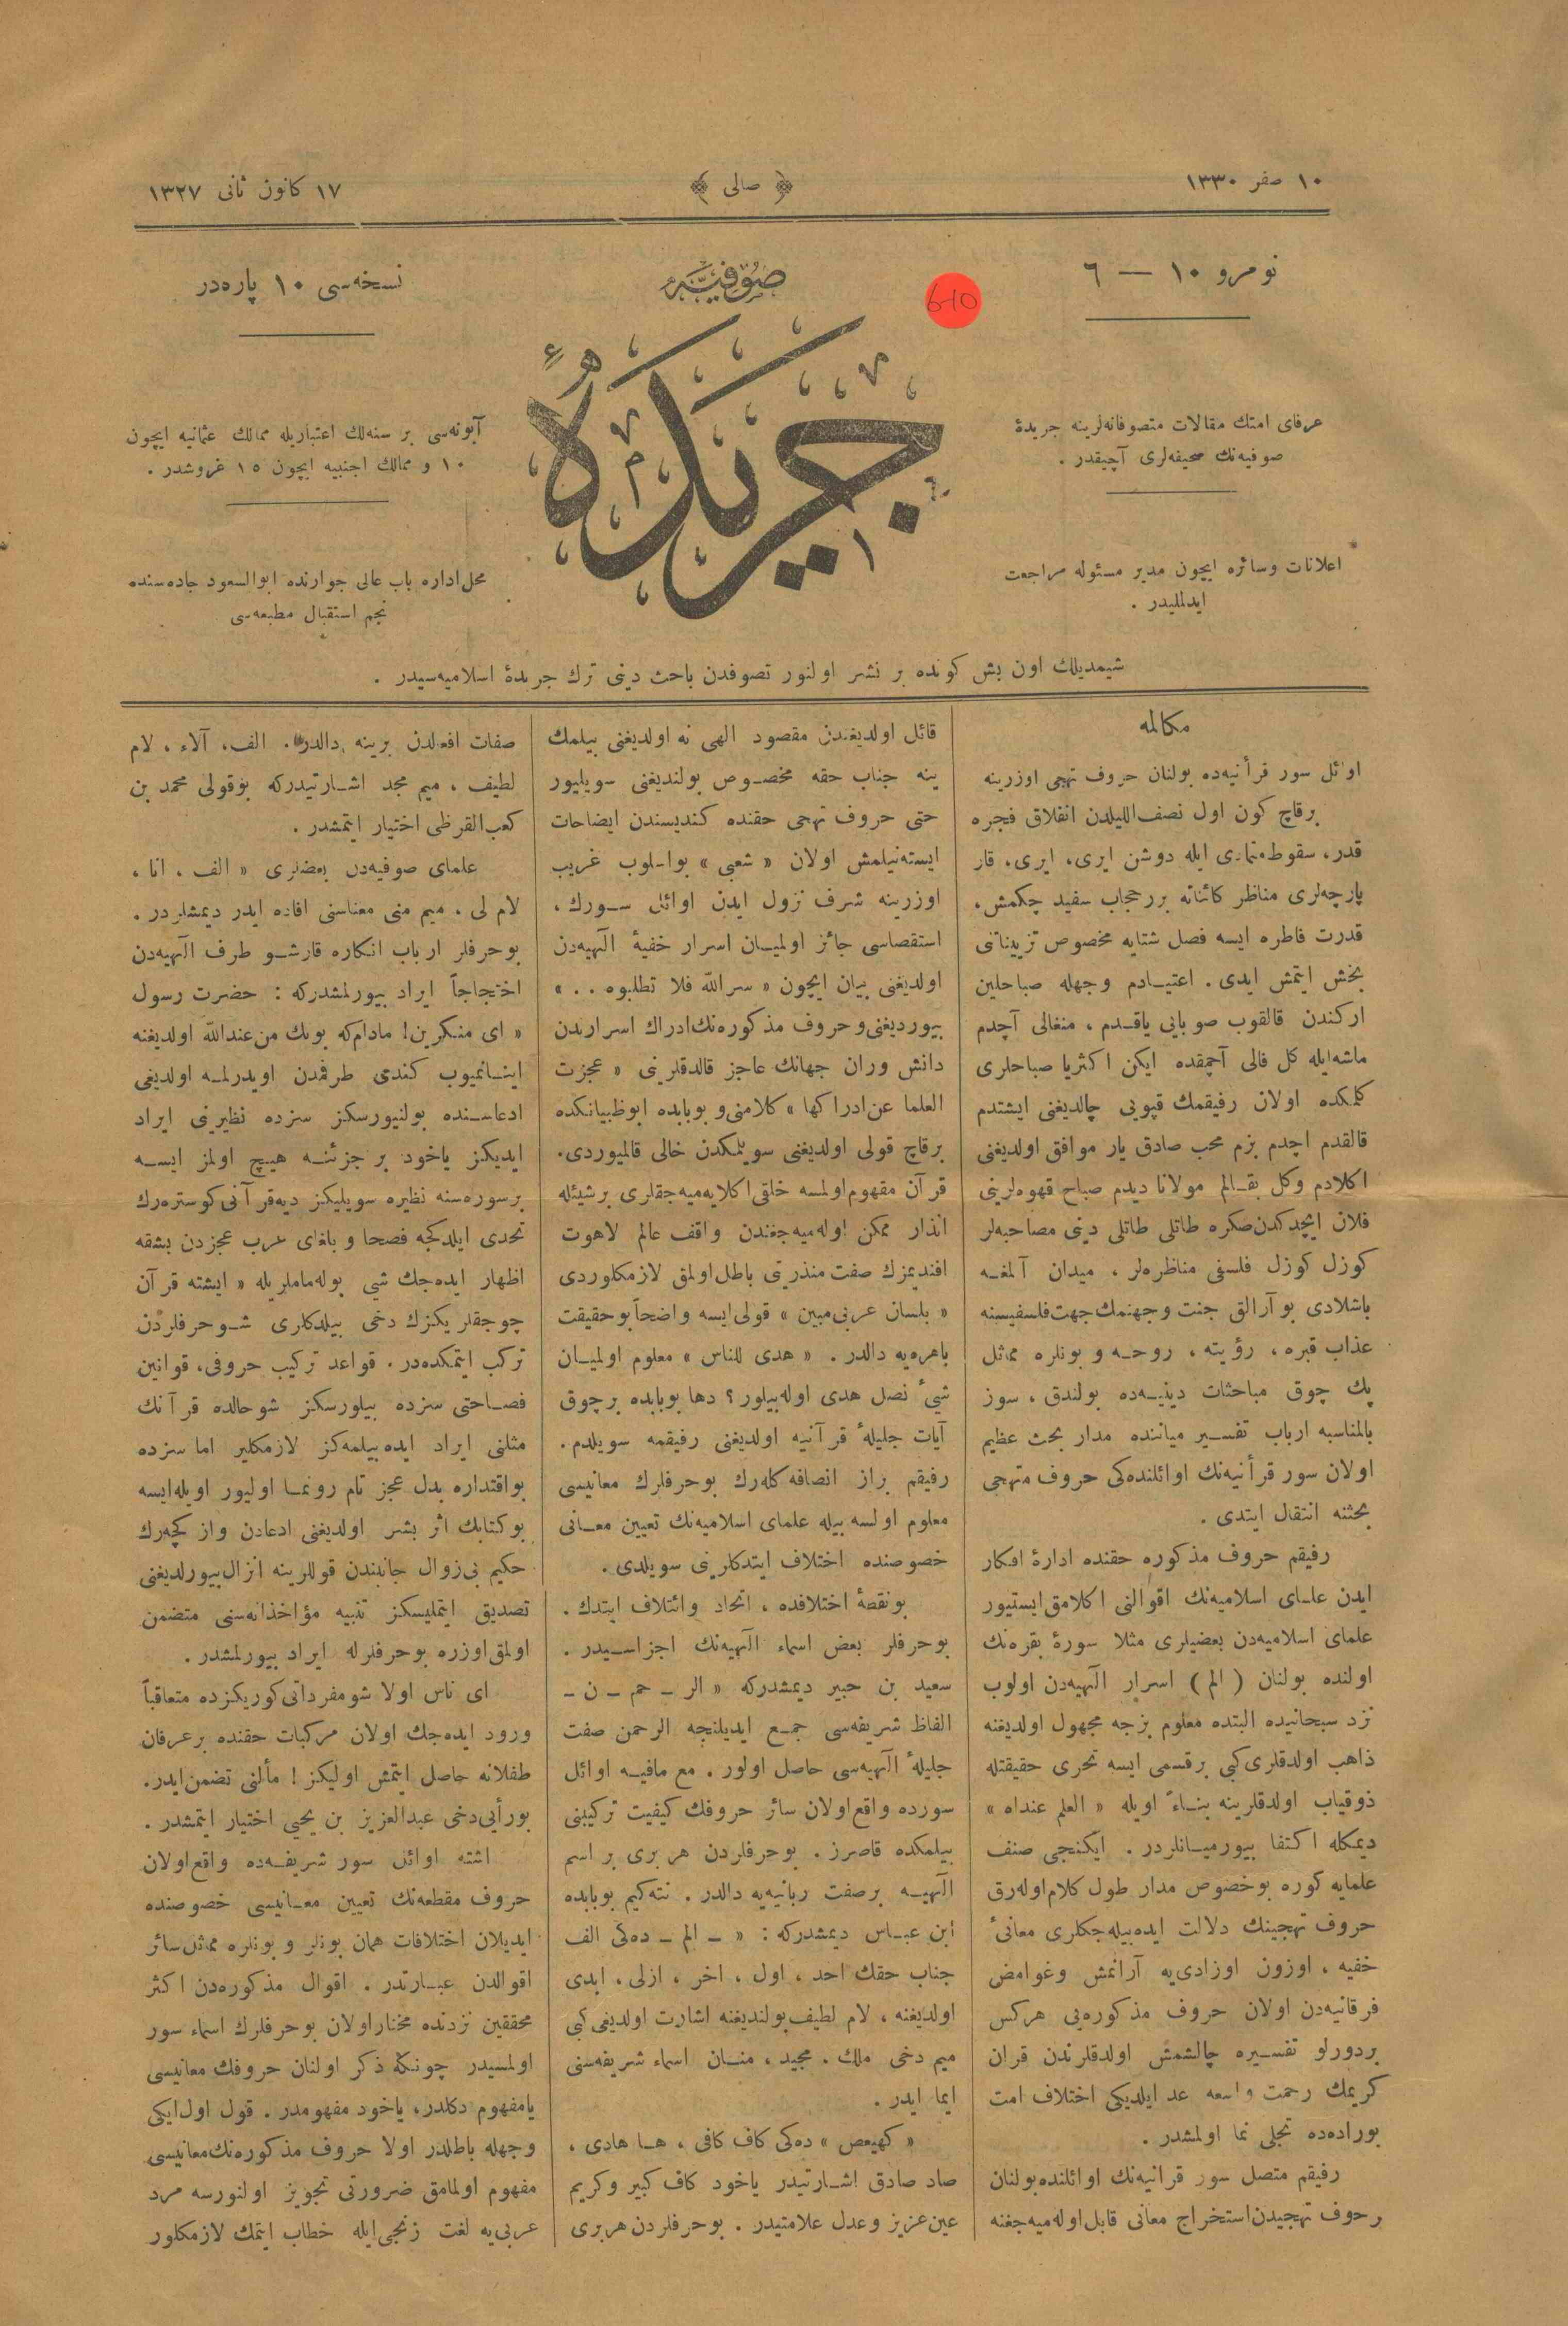 ١٠ صفر ١٣٣٠
﴿ صالی ﴾
١٧ كانون ثانی ١٣٢٧
نومرو ١٠ — ٦
610
صوفیه
نسخه‌سی ١٠ پاره‌در
جریدهٔ
عرفای امتك مقالات متصوفانه‌لرینه جریدهٔ
صوفیه‌نك صحیفه‌لری آچیقدر .
اعلانات وسائره ایچون مدیر مسئوله مراجعت
ایدلملیدر .
آبونه‌سی بر سنه‌لك اعتباریله ممالك عثمانیه ایچون
١٠ و ممالك اجنبیه ایچون ١٥ غروشدر .
محل اداره باب عالی جوارنده ابوالسعود جاده‌سنده
نجم استقبال مطبعه‌سی
شیمدیلك اون بش كونده بر نشر اولنور تصوفدن باحث دینی ترك جریدهٔ اسلامیه‌سیدر .
مكالمه
اوائل سور قرأنیه‌ده بولنان حروف تهجی اوزرینه
برقاچ كون اول نصف‌اللیلدن انفلاق فجره
قدر، سقوط متمادی ایله دوشن ایری، ایری، قار
پارچه‌لری مناظر كائناته برر حجاب سفید چكمش،
قدرت فاطره ایسه فصل شتایه مخصوص تزییناتی
بخش ایتمش ایدی . اعتیادم وجهله صباحلین
اركندن قالقوب صوبایی یاقدم ، منغالی آچدم
ماشه‌ایله كل فالی آچمقده ایكن اكثریا صباحلری
كلمكده اولان رفیقمك قپویی چالدیغنی ایشتدم
قالقدم اچدم بزم محب صادق یار موافق اولدیغنی
اكلادم وكل بقالم مولانا دیدم صباح قهوه‌لرینی
فلان ایچدكدن‌صكره طاتلی طاتلی دینی مصاحبه‌لر
كوزل كوزل فلسفی مناظره‌لر ، میدان آلمغه
باشلادی بو آرالق جنت وجهنمك جهت فلسفیسنه
عذاب قبره ، رؤیته ، روحه و بونلره مماثل
پك چوق مباحثات دینیه‌ده بولندق ، سوز
بالمناسبه ارباب تفسیر میاننده مدار بحث عظیم
اولان سور قرأنیه‌نك اوائلنده‌كی حروف متهجی
بحثنه انتقال ایتدی .
رفیقم حروف مذكوره حقنده ادارهٔ افكار
ایدن علمای اسلامیه‌نك اقوالنی اكلامق‌ایستیور
علمای اسلامیه‌دن بعضیلری مثلا سورهٔ بقره‌نك
اولنده بولنان ( الم ) اسرار الهیه‌دن اولوب
نزد سبحانیده البته معلوم بزجه مجهول اولدیغنه
ذاهب اولدقلری كبی برقسمی ایسه تحری حقیقتله
ذوقیاب اولدقلرینه بناءً اویله « العلم عنداه »
دیمكله اكتفا بیورمیانلردر . ایكنجی صنف
علمایه كوره بوخصوص مدار طول كلام‌اوله‌رق
حروف تهجینك دلالت ایده‌بیله‌جكلری معانیٔ
خفیه ، اوزون اوزادی‌یه آرانمش وغوامض
فرقانیه‌دن اولان حروف مذكوره‌یی هركس
بردورلو تفسیره چالشمش اولدقلرندن قران
كریمك رحمت واسعه عد ایلدیكی اختلاف امت
بوراده‌ده تجلی نما اولمشدر .
رفیقم متصل سور قرانیه‌نك اوائلنده‌بولنان
رحوف تهجیدن‌استخراج معانی قابل‌اوله‌میه‌جغنه
قائل اولدیغندن مقصود الهی نه اولدیغنی بیلمك
ینه جناب حقه مخصوص بولندیغنی سویلیور
حتی حروف تهجی حقنده كندیسندن ایضاحات
ایسته‌نیلمش اولان « شعبی » بواسلوب غریب
اوزرینه شرف نزول ایدن اوائل سورك ،
استقصاسی جائز اولمیان اسرار خفیهٔ الهیه‌دن
اولدیغنی بیان ایچون « سرالله فلا تطلبوه . . »
بیوردیغنی‌و حروف مذكوره‌نك‌ادراك اسراربدن
دانش وران جهانك عاجز قالدقلرینی « عجزت
العلما عن‌ادراكها » كلامنی‌و بوبابده ابوظبیانكده
برقاچ قولی اولدیغنی سویلمكدن خالی قالمیوردی.
قرآن مفهوم‌اولمسه خلقی‌اكلایه‌میه‌جقلری برشیئله
انذار ممكن اوله‌میه‌جغندن واقف عالم لاهوت
افندیمزك صفت منذریتی باطل‌اولمق لازمكلوردی
« بلسان عربی‌مبین » قولی‌ایسه واضحاً بوحقیقت
باهره‌یه دالدر . « هدی للناس » معلوم اولمیان
شیٔ نصل هدی اوله‌بیلور؟ دها بوبابده برچوق
آیات جلیلهٔ قرآنیه اولدیغنی رفیقمه سویلدم.
رفیقم براز انصافه كله‌رك بوحرفلرك معانیسی
معلوم اولسه بیله علمای اسلامیه‌نك تعیین معانی
خصوصنده اختلاف ایتدكلرینی سویلدی .
بونقطهٔ اختلافده ، اتحاد وائتلاف ایتدك .
بوحرفلر بعض اسماء الهیه‌نك اجزاسیدر .
سعید بن حبیر دیمشدركه « الر - حم - ن -
الفاظ شریفه‌سی جمع ایدیلنجه الرحمن صفت
جلیلهٔ الهیه‌سی حاصل اولور . مع مافیه اوائل
سورده واقع‌اولان سائر حروفك كیفیت تركیبنی
بیلمكده قاصرز . بوحرفلردن هربری براسم
الهیه برصفت ربانیه‌یه دالدر . نته‌كیم بوبابده
ابن عباس دیمشدركه : « - الم - ده‌كی الف
جناب حقك احد ، اول ، اخر ، ازلی ، ابدی
اولدیغنه ، لام لطیف‌بولندیغنه اشارت اولدیغی‌كبی
میم دخی ملك . مجید ، منان اسماء شریفه‌سنی
ایما ایدر .
« كهیعص » ده‌كی كاف كافی ، ها هادی ،
صاد صادق اشارتیدر یاخود كاف كبیر وكریم
عین‌عزیز وعدل علامتیدر . بوحرفلردن هربری
صفات افعالدن برینه دالدر. الف، آلاء ، لام
لطیف ، میم مجد اشارتیدركه بوقولی محمد بن
كعب‌القرظی اختیار ایتمشدر .
علمای صوفیه‌دن بعضلری « الف ، انا ،
لام لی ، میم منی معناسنی افاده ایدر دیمشلردر .
بوحرفلر ارباب انكاره قارشو طرف الهیه‌دن
احتجاجاً ایراد بیورلمشدركه : حضرت رسول
« ای منكرین! مادام‌كه بونك من‌عندالله اولدیغنه
اینانمیوب كندی طرفمدن اویدرلمه اولدیغی
ادعاسنده بولنیورسكز سزده نظیرینی ایراد
ایدیكز یاخود بر جزئنه هیچ اولمز ایسه
برسوره‌سنه نظیره سویلیكز دیه‌قرآنی‌كوستره‌رك
تحدی ایلدكجه فصحا و بلغای عرب عجزدن بشقه
اظهار ایده‌جك شی بوله‌ماملریله « ایشته قرآن
چوجقلریكزك دخی بیلدكلری شوحرفلردن
تركب ایتمكده‌در . قواعد تركیب حروفی، قوانین
فصاحتی سزده بیلورسكز شوحالده قرآنك
مثلنی ایراد ایده‌بیلمه‌كز لازمكلیر اما سزده
بواقتداره بدل عجز تام رونما اولیور اویله‌ایسه
بوكتابك اثر بشر اولدیغنی ادعادن واز كچه‌رك
حكیم بی‌زوال جانبندن قوللرینه انزال‌بیورلدیغنی
تصدیق ایتملیسكز تنبیه مؤاخذانه‌سنی متضمن
اولمق‌اوزره بوحرفلرله ایراد بیورلمشدر .
ای ناس اولا شومفرداتی‌كوریكزده متعاقباً
ورود ایده‌جك اولان مركبات حقنده برعرفان
طفلانه حاصل ایتمش اولیكز ! مألنی تضمن‌ایدر.
بورأیی‌دخی عبدالعزیز بن یحیی اختیار ایتمشدر .
اشته اوائل سور شریفه‌ده واقع‌اولان
حروف مقطعه‌نك تعیین معانیسی خصوصنده
ایدیلان اختلافات همان بونلر و بونلره مماثل‌سائر
اقوالدن عبارتدر . اقوال مذكوره‌دن اكثر
محققین نزدنده مختار اولان بوحرفلرك اسماء سور
اولمسیدر چونكه ذكر اولنان حروفك معانیسی
یامفهوم دكلدر، یاخود مفهومدر . قول اول‌ایكی
وجهله باطلدر اولا حروف مذكوره‌نك‌معانیسی
مفهوم اولمامق ضرورتی تجویز اولنورسه مرد
عربی‌یه لغت زنجی‌ایله خطاب ایتمك لازمكلور